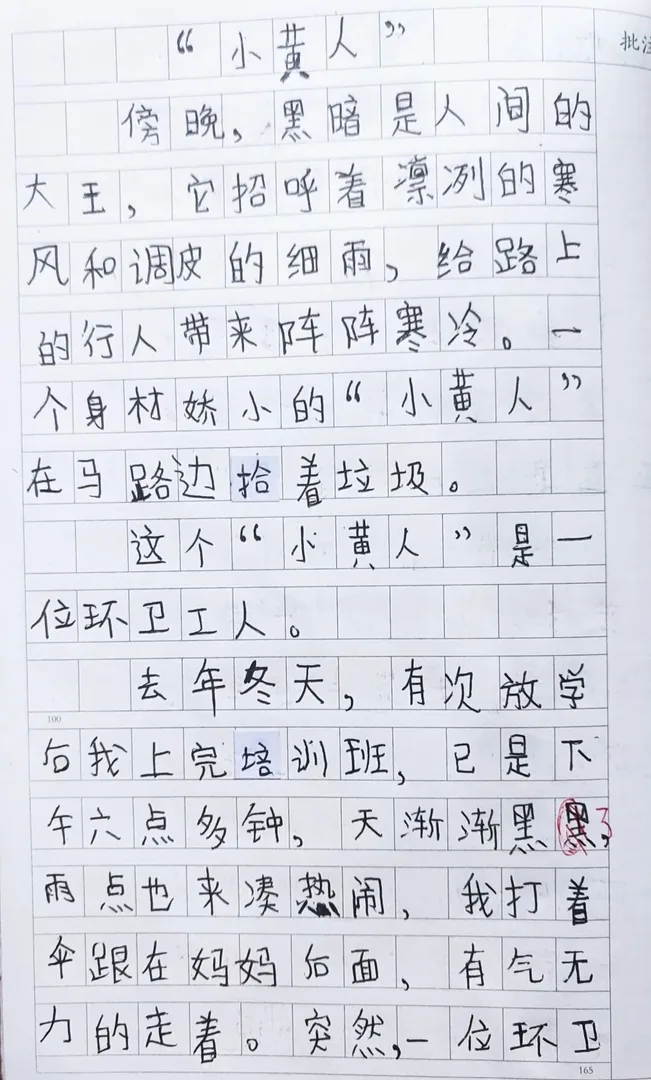 “小黄人”
批注
傍晚，黑暗是人间的
大王，它招呼着凛冽的寒
风和调皮的细雨，给路上
的行人带来阵阵寒冷。一
个身材娇小的“小黄人”
在马路边拾着垃圾。
这个“小黄人”是一
位环卫工人。
去年冬天，有次放学
100
后我上完培训班，已是下
午六点多钟，天渐渐黑了，
雨点也来凑热闹，我打着
伞跟在妈妈后面，有气无
力的走着。突然，一位环卫
165